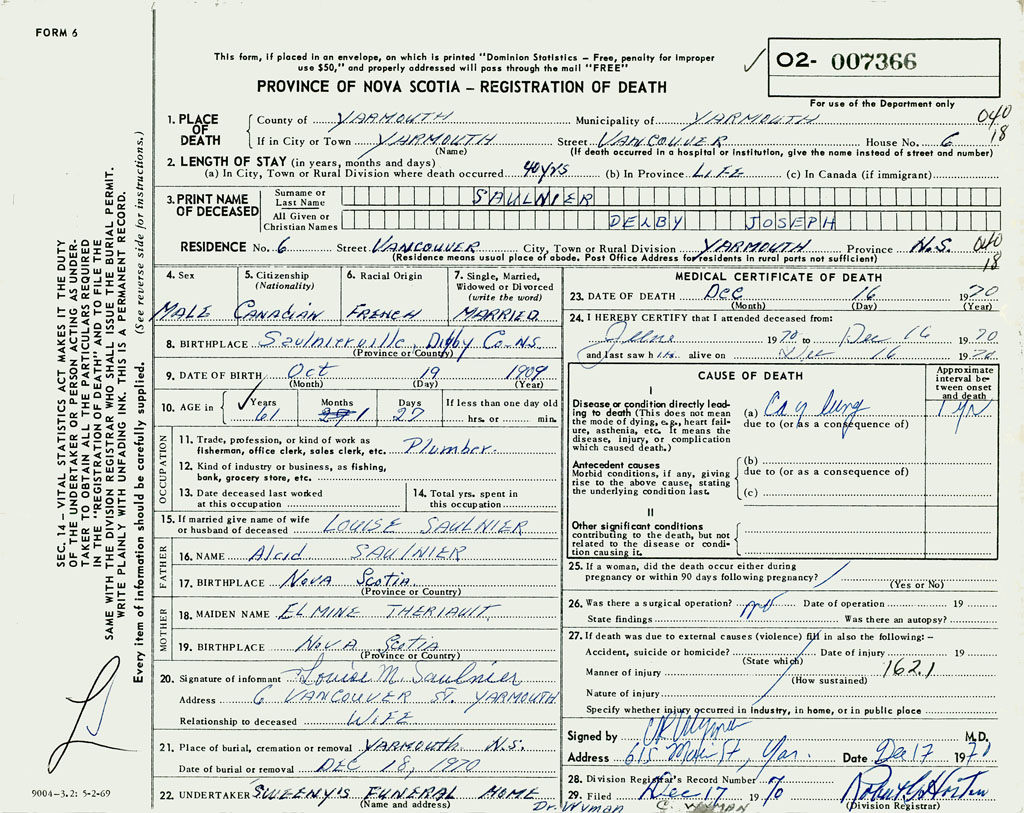 FORM 6
This form, if placed in an envelope, on which is printed "Dominion Statistics – Free, penalty for improper
use $50," and properly addressed will pass through the mail "FREE"
PROVINCE OF NOVA SCOTIA – REGISTRATION OF DEATH
O2- 007366
For use of the Department only
1. PLACE OF DEATH County of YARMOUTH Municipality of YARMOUTH 040
If in City or Town YARMOUTH Street VANCOUVER House No. 6 18
(Name) (If death occurred in a hospital or institution, give the name instead of street and number)
2. LENGTH OF STAY (in years, months and days)
(a) In City, Town or Rural Division where death occurred 40 yrs (b) In Province LIFE (c) In Canada (if immigrant)
3. PRINT NAME OF DECEASED Surname or Last Name SAULNIER
All Given or Christian Names DELBY JOSEPH
RESIDENCE No. 6 Street VANCOUVER City, Town or Rural Division YARMOUTH Province N.S. 040
(Residence means usual place of abode. Post Office Address for residents in rural parts not sufficient) 18
4. Sex 5. Citizenship (Nationality) 6. Racial Origin 7. Single, Married, Widowed or Divorced (write the word)
MALE CANADIAN FRENCH MARRIED
8. BIRTHPLACE Saulnierville, Digby Co. N.S.
(Province or Country)
9. DATE OF BIRTH Oct 19 1909
(Month) (Day) (Year)
10. AGE in Years Months Days If less than one day old
61 1 27 hrs. or min.
OCCUPATION
11. Trade, profession, or kind of work as
fisherman, office clerk, sales clerk, etc. Plumber.
12. Kind of industry or business, as fishing,
bank, grocery store, etc.
13. Date deceased last worked
at this occupation
14. Total yrs. spent in
this occupation
15. If married give name of wife
or husband of deceased LOUISE SAULNIER
FATHER
16. NAME Alcid SAULNIER
17. BIRTHPLACE NOVA Scotia
(Province or Country)
MOTHER
18. MAIDEN NAME ELMINE THERIAULT
19. BIRTHPLACE NOVA Scotia
(Province or Country)
20. Signature of informant Louise M. Saulnier
Address 6 VANCOUVER ST. YARMOUTH
Relationship to deceased WIFE
21. Place of burial, cremation or removal YARMOUTH N.S.
Date of burial or removal DEC 18, 1970
22. UNDERTAKER SWEENY'S FUNERAL HOME
(Name and address)
MEDICAL CERTIFICATE OF DEATH
23. DATE OF DEATH Dec 16 1970
(Month) (Day) (Year)
24. I HEREBY CERTIFY that I attended deceased from:
June 1970 to Dec 16 1970
and last saw him alive on Dec 16 1970
CAUSE OF DEATH
Approximate interval between onset and death
I
Disease or condition directly leading to death (This does not mean the mode of dying, e.g., heart failure, asthenia, etc. It means the disease, injury, or complication which caused death.)
(a) Ca of lung 1 yr
due to (or as a consequence of)
Antecedent causes
Morbid conditions, if any, giving rise to the above cause, stating the underlying condition last.
(b)
due to (or as a consequence of)
(c)
II
Other significant conditions
contributing to the death, but not
related to the disease or condition causing it.
25. If a woman, did the death occur either during
pregnancy or within 90 days following pregnancy?
(Yes or No)
26. Was there a surgical operation? no Date of operation 19
State findings Was there an autopsy?
27. If death was due to external causes (violence) fill in also the following: –
Accident, suicide or homicide? Date of injury 19
(State which)
Manner of injury 162.1
(How sustained)
Nature of injury
Specify whether injury occurred in industry, in home, or in public place
Signed by C Wyman M.D.
Address 615 Main St, Yar. Date Dec 17 1970
28. Division Registrar's Record Number
29. Filed Dec 17 1970 Robert G Horton
(Division Registrar)
Dr. Wyman C. WYMAN
SEC. 14 – VITAL STATISTICS ACT MAKES IT THE DUTY
OF THE UNDERTAKER OR PERSON ACTING AS UNDERTAKER TO OBTAIN ALL THE PARTICULARS REQUIRED
IN THE "REGISTRATION OF DEATH" AND TO FILE THE
SAME WITH THE DIVISION REGISTRAR WHO SHALL ISSUE THE BURIAL PERMIT.
WRITE PLAINLY WITH UNFADING INK. THIS IS A PERMANENT RECORD.
Every item of information should be carefully supplied. (See reverse side for instructions.)
9004-3.2: 5-2-69